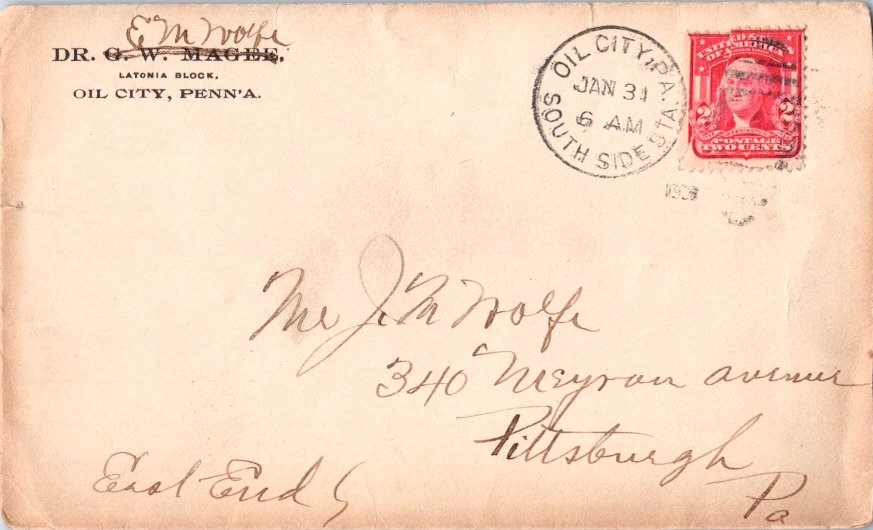 E M Wolfe
DR. G. W. MAGEE,
LATONIA BLOCK,
OIL CITY, PENN'A.
OIL CITY, PA.
JAN 31
6 AM
SOUTH SIDE STA.
UNITED STATES
OF AMERICA
2 2
POSTAGE
TWO CENTS
Mr J. M Wolfe
340 Meyran avenue
Pittsburgh
Pa
East End